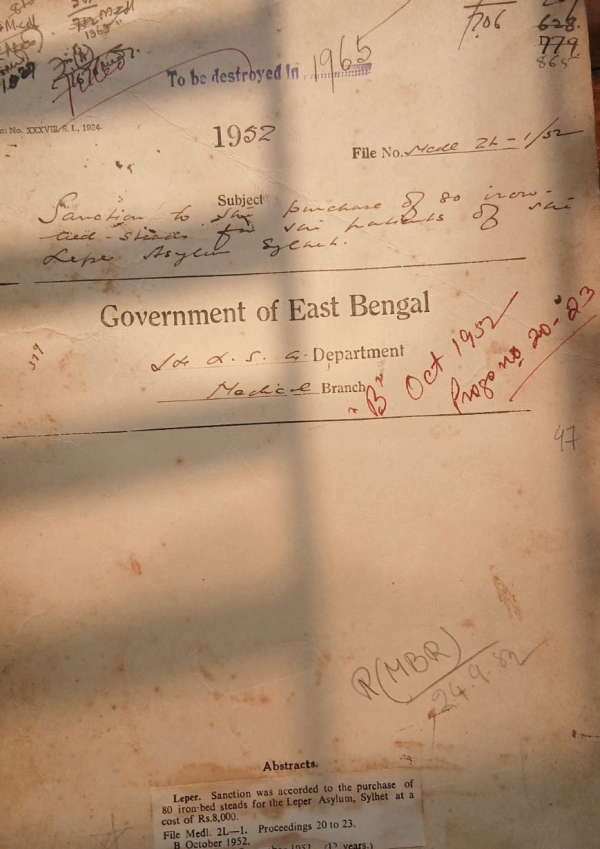 706
628
779
865
To be destroyed in 1965
Filed
m No. XXXVIII S. I., 1924.
1952
File No. Medl 2L-1/52
Subject
Sanction to the purchase of 80 iron-
bed-steads for the patients of the
Leper Asylum Sylhet.
Government of East Bengal
H & L. S. G. Department
Medical Branch
"B" Oct 1952
Progs no 20-23
47
R(MBR)
24.9.52
Abstracts.
Leper. Sanction was accorded to the purchase of
80 iron-bed steads for the Leper Asylum, Sylhet at a
cost of Rs.8,000.
File Medl. 2L—1. Proceedings 20 to 23.
B October 1952.
(12 years.)